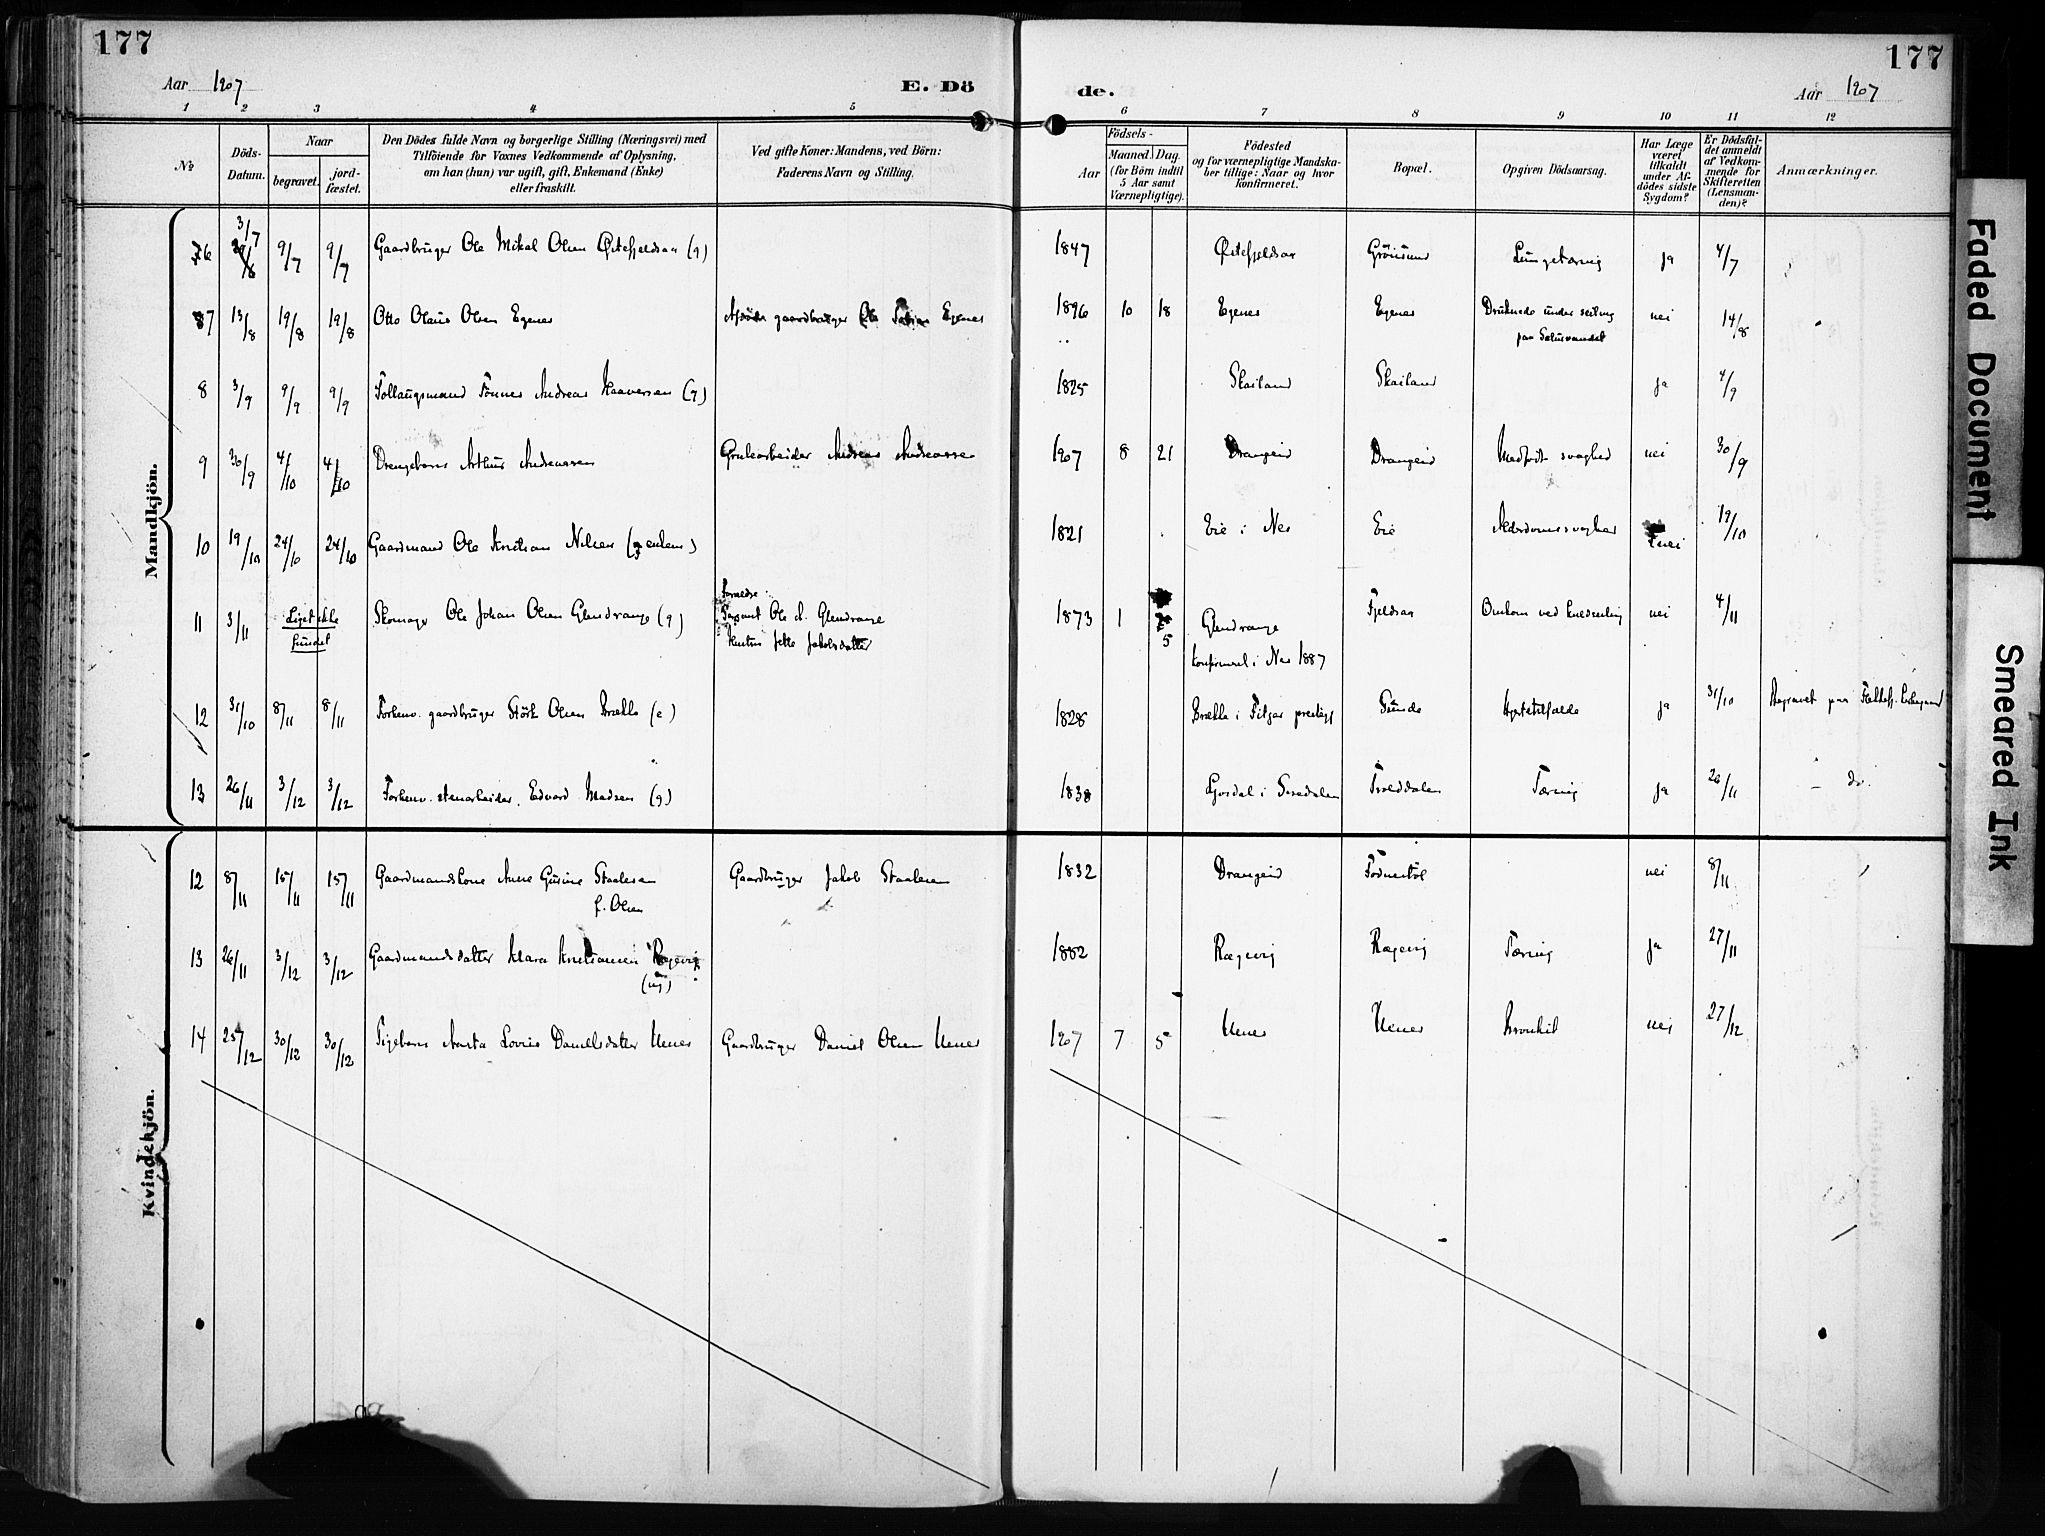 177
177
Aar 1907
E. Dö
de.
Aar 1907
1 2 3 4 5 6 7 8 9 10 11 12
№
Döds-Datum.
Naar
begravet.
jord-fæstet.
Den Dödes fulde Navn og borgerlige Stilling (Næringsvei) med
Tilföiende for Voxnes Vedkommende af Oplysning,
om han (hun) var ugift, gift, Enkemand (Enke)
eller fraskilt.
Ved gifte Koner: Mandens, ved Börn:
Faderens Navn og Stilling.
Födsels-
Aar
Maaned. Dag.
(for Börn indtil
5 Aar samt
Værnepligtige).
Födested
og for værnepligtige Mandska-
ber tillige: Naar og hvor
konfirmeret.
Bopæl.
Opgiven Dödsaarsag.
Har Læge
været
tilkaldt
under Af-
dödes sidste
Sygdom?
Er Dödsfal-
det anmeldt
af Vedkom-
mende for
Skifteretten
(Lensman-
den)?
Anmærkninger.
Mandkjön.
6 3/7 9/7 9/7 Gaardbruger Ole Mikal Olsen (g) 1847 Grönsund Lungetæring ja 4/7
7 13/8 19/8 19/8 Otto Olaus Olsen Egenes gaardbruger Ole Egenes 1896 10 18 Egenes Egenes Druknede under seiling nei 14/8
paa
8 3/9 9/9 9/9 Tönnes Andreas (g) 1825 Skailand Skailand ja 4/9
9 30/9 4/10 4/10 Drengebarn Arthur Andreassen Grubearbeider Andreas Andreassen 1907 8 21 Drangeid Drangeid Medfödt svaghed nei 30/9
10 19/10 24/10 24/10 Gaardmand Ole Nilsen 1821 Eie i Nes Eie Alderdomssvaghed nei 19/10
11 3/11 Liget ikke
fundet Skomager Ole Johan Olsen Glendrange (g) Forældre:
Ole Glendrange
Jakobsdatter 1873 1 5 Glendrange
konfirmeret i Nes 1887 Fjeldsaa Omkom ved nei 4/11
12 31/10 8/11 8/11 Forhenv. gaardbruger Störk Olsen Brække (e) 1828 Brække i Sunde Hjertetilfælde ja 31/10 Begravet paa
13 26/11 3/12 3/12 Forhenv. stenarbeider Edvard Madsen (g) 1838 i Siredalen Trolddalen Tæring ja 26/11 – do.
Kvindekjön.
12 8/11 15/11 15/11 Gaardmandskone Anne Gurine Staalesen
f. Olsen Gaardbruger Jakob Staalesen 1832 Drangeid nei 8/11
13 26/11 3/12 3/12 Gaardmandsdatter Klara Kristiansen Rægevig
(ug) 1882 Rægevig Rægevig Tæring ja 27/11
14 25/12 30/12 30/12 Pigebarn Marta Lovise Danielsdatter Uenes Gaardbruger Daniel Olsen Uenes 1907 7 5 Uenes Uenes Bronkit nei 27/12
Faded Document
Smeared Ink